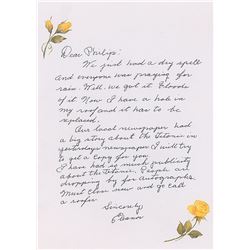 Dear Philip:
We just had a dry spell
and everyone was praying for
rain. Well, we got it floods
of it Now I have a hole in
my roof and it has to be
replaced.
Our local newspaper had
a big story about the Titanic in
yesterdays newspaper I will try
to get a copy for you
I have had so much publicity
about the Titanic. People are
dropping by for autographs
Must close now and go call
a roofer
Sincerely
Eleanor